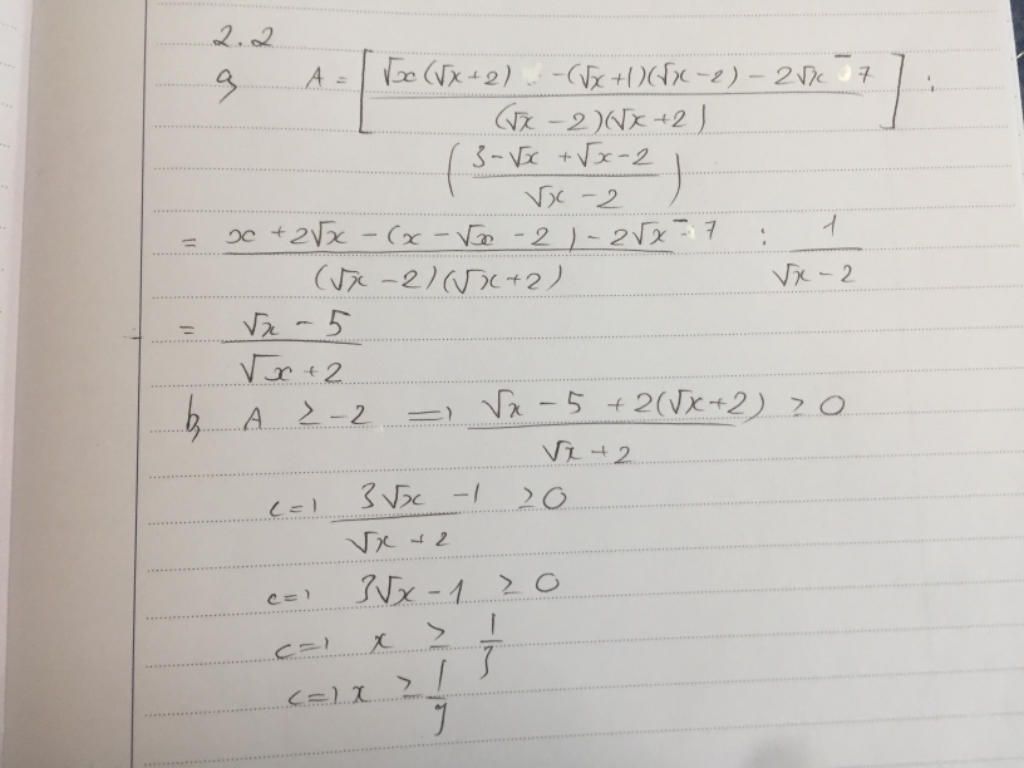 2.2
a, A = [ (√x(√x+2) -(√x+1)(√x-2) - 2√x - 7) / ((√x - 2)(√x+2)) ] :
( (3-√x +√x-2) / (√x - 2) )
= (x + 2√x - (x - √x - 2) - 2√x - 7) / ((√x - 2)(√x+2)) : 1 / (√x - 2)
= (√x - 5) / (√x + 2)
b, A ≥ -2 => (√x - 5 + 2(√x+2)) / (√x + 2) ≥ 0
<=> (3√x - 1) / (√x + 2) ≥ 0
<=> 3√x - 1 ≥ 0
<=> x ≥ 1/3
<=> x ≥ 1/9